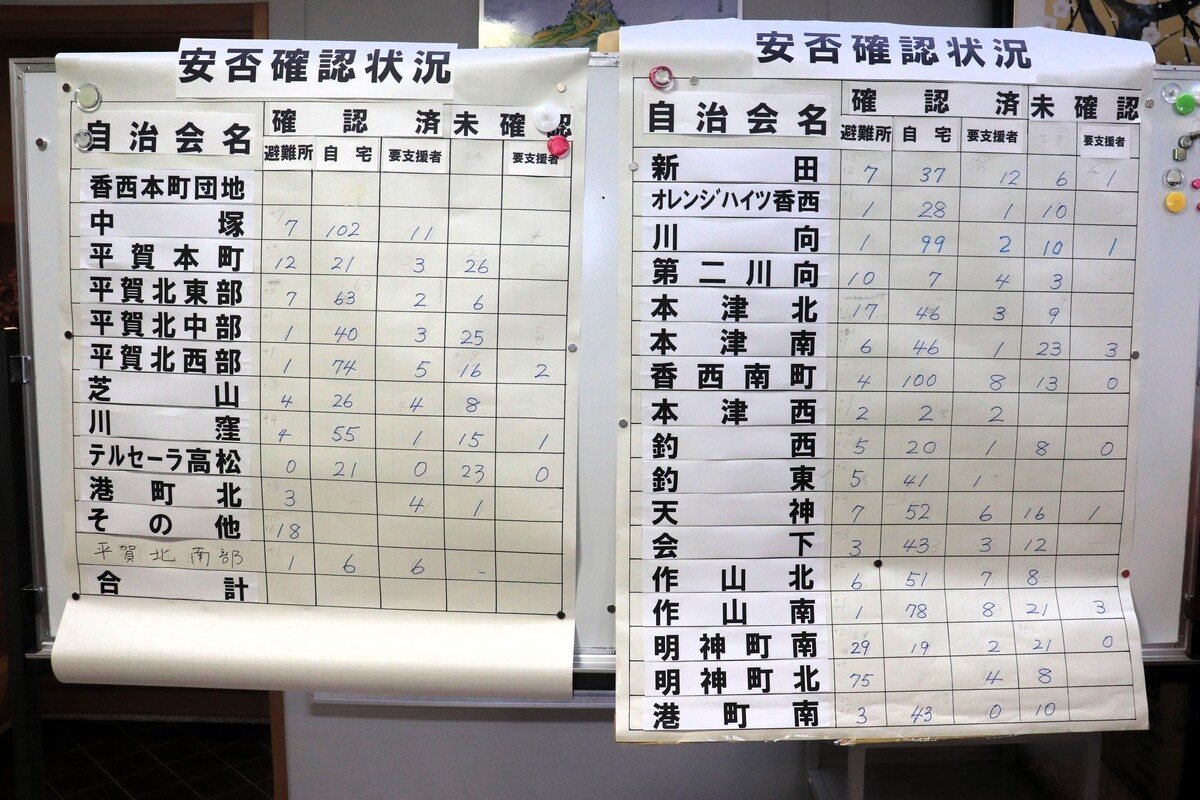 安否確認状況
自治会名 確認済 未確認
避難所 自宅 要支援者 要支援者
香西本町団地
中塚 7 102 11
平賀本町 12 21 3 26
平賀北東部 7 63 2 6
平賀北中部 1 40 3 25
平賀北西部 1 74 5 16 2
芝山 4 26 4 8
川窪 4 55 1 15 1
テルセーラ高松 0 21 0 23 0
港町北 3 4 1
その他 18
平賀北南部 1 6 6 -
合計
安否確認状況
自治会名 確認済 未確認
避難所 自宅 要支援者 要支援者
新田 7 37 12 6 1
オレンジハイツ香西 1 28 1 10
川向 1 99 2 10 1
第二川向 10 7 4 3
本津北 17 46 3 9
本津南 6 46 1 23 3
香西南町 4 100 8 13 0
本津西 2 2 2
釣西 5 20 1 8 0
釣東 5 41 1
天神 7 52 6 16 1
会下 3 43 3 12
作山北 6 51 7 8
作山南 1 78 8 21 3
明神町南 29 19 2 21 0
明神町北 75 4 8
港町南 3 43 0 10